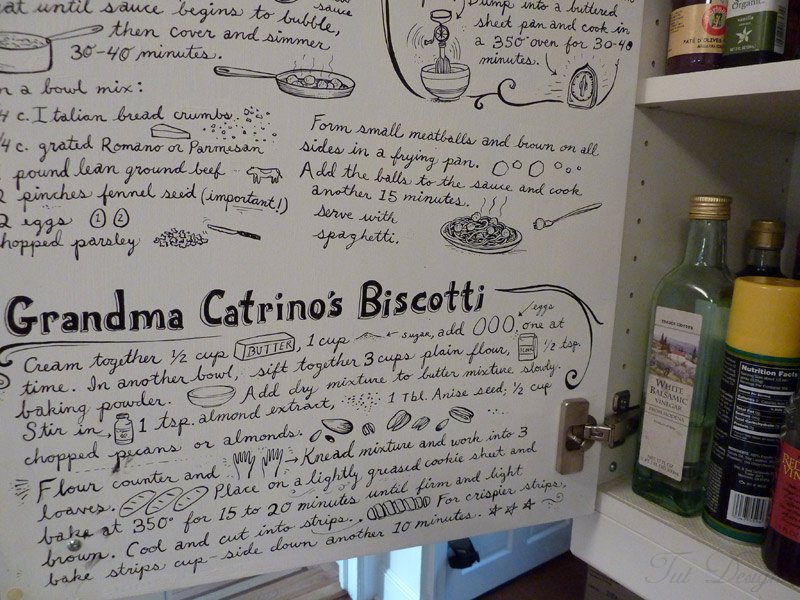 at until sauce begins to bubble,
then cover and simmer
30-40 minutes.
sauce
Dump into a buttered
sheet pan and cook in
a 350° oven for 30-40
minutes.
n a bowl mix:
1/4 c. Italian bread crumbs
1/4 c. grated Romano or Parmesan
pound lean ground beef
2 pinches fennel seed (important!)
2 eggs
chopped parsley
Form small meatballs and brown on all
sides in a frying pan.
Add the balls to the sauce and cook
another 15 minutes.
serve with
spaghetti.
Grandma Catrino's Biscotti
Cream together 1/2 cup BUTTER, 1 cup sugar, add eggs, one at
time. In another bowl, sift together 3 cups plain flour, 1/2 tsp.
baking powder. Add dry mixture to butter mixture slowly.
Stir in 1 tsp. almond extract, 1 Tbl. Anise seed; 1/2 cup
chopped pecans or almonds.
Flour counter and Knead mixture and work into 3
loaves. Place on a lightly greased cookie sheet and
bake at 350° for 15 to 20 minutes until firm and light
brown. Cool and cut into strips. For crispier strips,
bake strips cup-side down another 10 minutes.
Organic
vanilla
TRADER JOE'S
WHITE
BALSAMIC
VINEGAR
FROM MODENA
Nutrition Facts
Tut Design